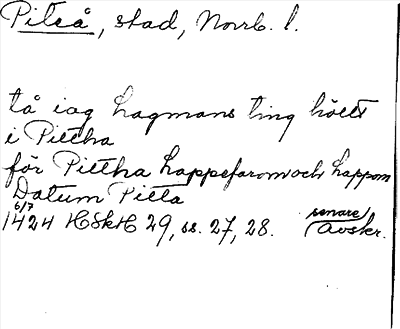 Piteå, stad, Norrb. l.
tå iag hagmans ting höllt
i Pittha
för Pittha happefarom och happom
Datum Pitta
6/7
1424 HSkH 29, ss. 27, 28. senare
Avskr.